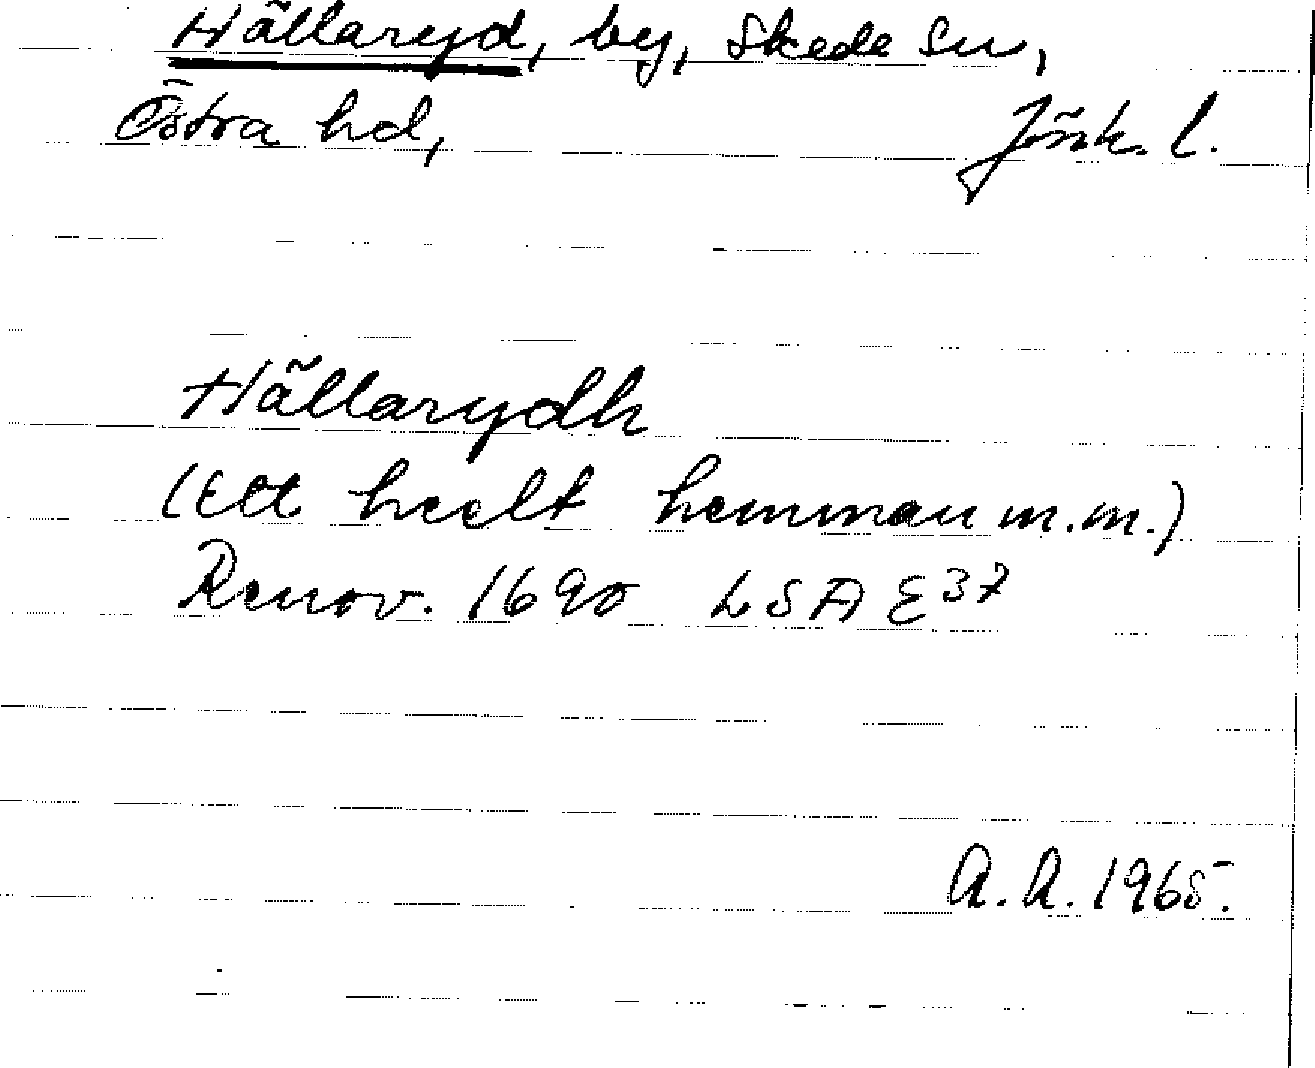 Hällaryd, by, Skede sn,
Östra hd, Jönk. l.
Hällarydh
(Ett heelt hemman m.m.)
Renov. 1690 LSA E37
A.A. 1965.